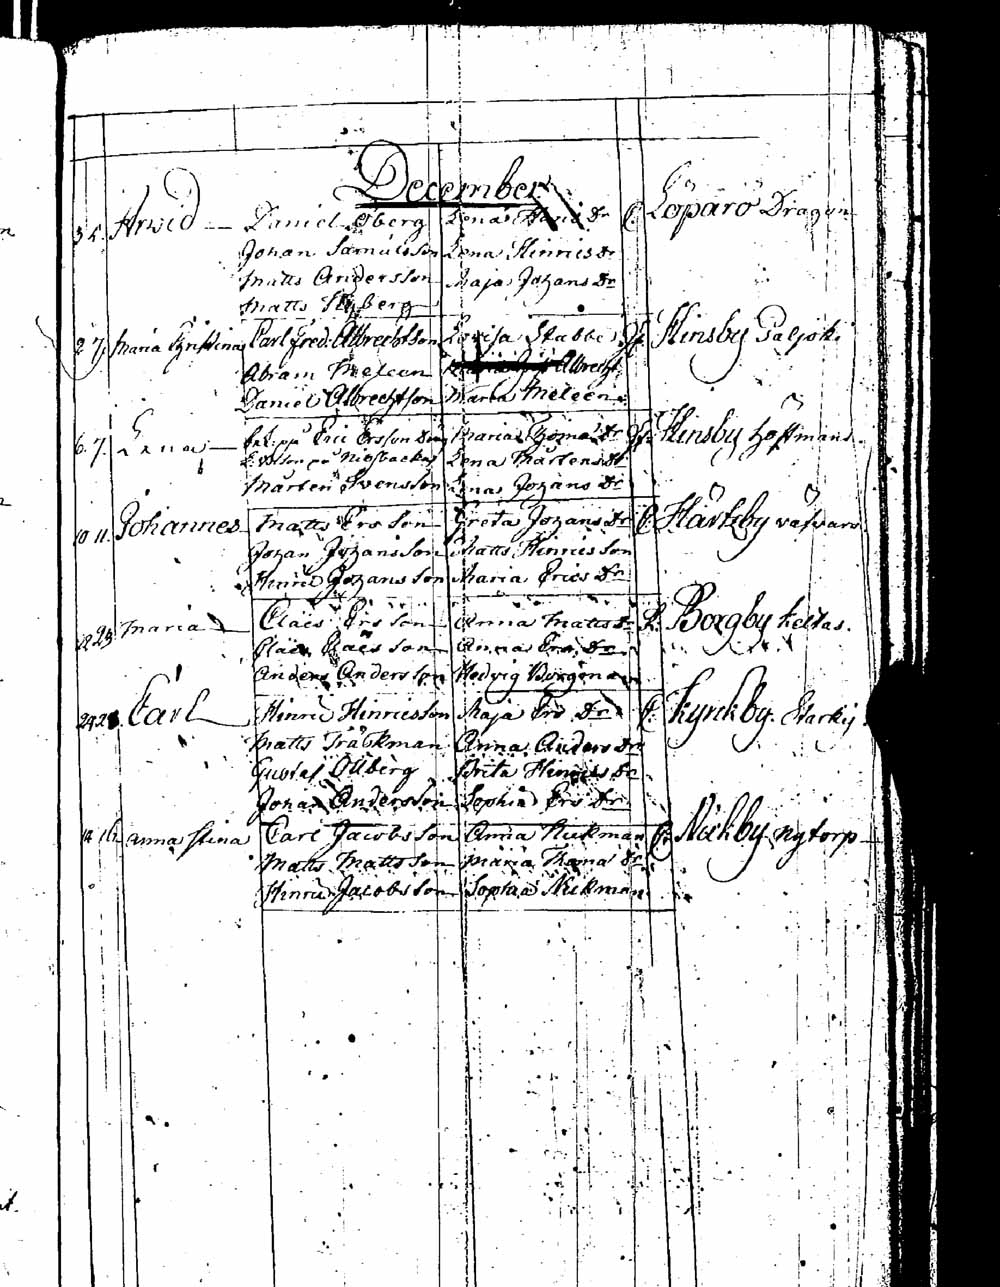 December
3 5. Arwid — Daniel Öberg Lena Dr Löparö Dragon
Johan Samuelsson Lena Hinrics Dr
Matts Andersson Maja Johans Dr
Matts Nyberg
2 7. Maria Christina Carl Fred. Albrechtson Lovisa Stabbe Hinsby
Abram Meleen Albrecht
Daniel Albrechtson Maria Meleen
6. 7. Lena — Eric Ersson Maria Thoma Dr Hinsby Hoffmans
Lena Mårtens Dr
Mårten Svensson Lena Johans Dr
10 11. Johannes Matts Ersson Greta Johans Dr Hårtsby
Johan Johansson Matts Hinricsson
Hinric Johansson Maria Erics Dr
23 Maria — Claes Ersson Anna Matts Dr Borgby Keitas.
Claes Claesson Anna Ers Dr
Anders Andersson Hedvig Borgman
Carl — Hinric Hinricsson Maja Ers Dr Kyrckby.
Matts Träskman Anna Anders Dr
Gustaf Ollberg Brita Hinrics Dr
Johan Andersson Sophia Ers Dr
14 16 Anna Stina Carl Jacobsson Anna Nickman Nickby nytorp
Matts Mattsson Maria Thoma Dr
Hinric Jacobsson Sophia Nickman